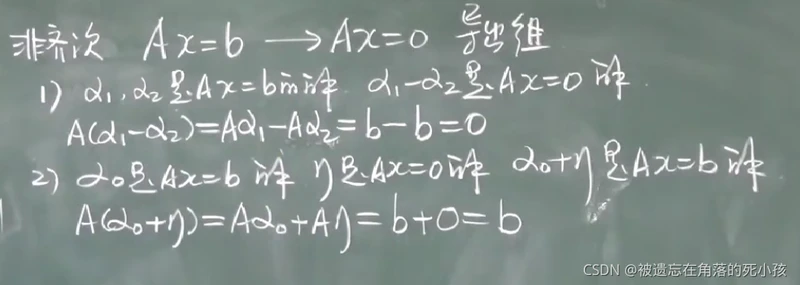 非齐次 Ax=b →Ax=0 导出组
1) α₁,α₂是Ax=b的解 α₁-α₂是Ax=0解
A(α₁-α₂)=Aα₁-Aα₂=b-b=0
2) α₀是Ax=b解 η是Ax=0解 α₀+η是Ax=b解
A(α₀+η)=Aα₀+Aη=b+0=b
CSDN @被遗忘在角落的死小孩